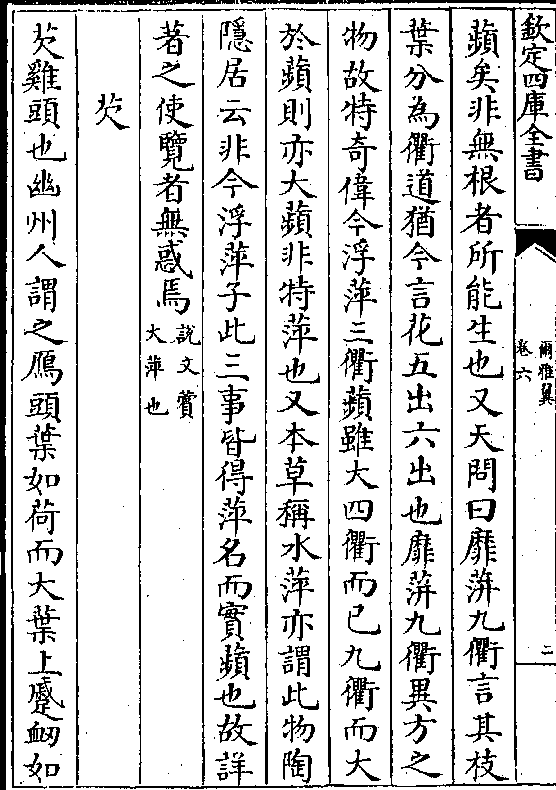 欽定四庫全書
爾雅翼
卷六
二
蘋矣非無根者所能生也又天問曰靡蓱九衢言其枝
葉分為衢道猶今言花五出六出也靡蓱九衢異方之
物故特奇偉今浮萍三衢蘋雖大四衢而已九衢而大
於蘋則亦大蘋非特萍也又本草稱水萍亦謂此物陶
隱居云非今浮萍子此三事皆得萍名而實蘋也故詳
著之使覽者無惑焉說文薲
大萍也
芡
芡雞頭也幽州人謂之鴈頭葉如荷而大葉上蹙衂如